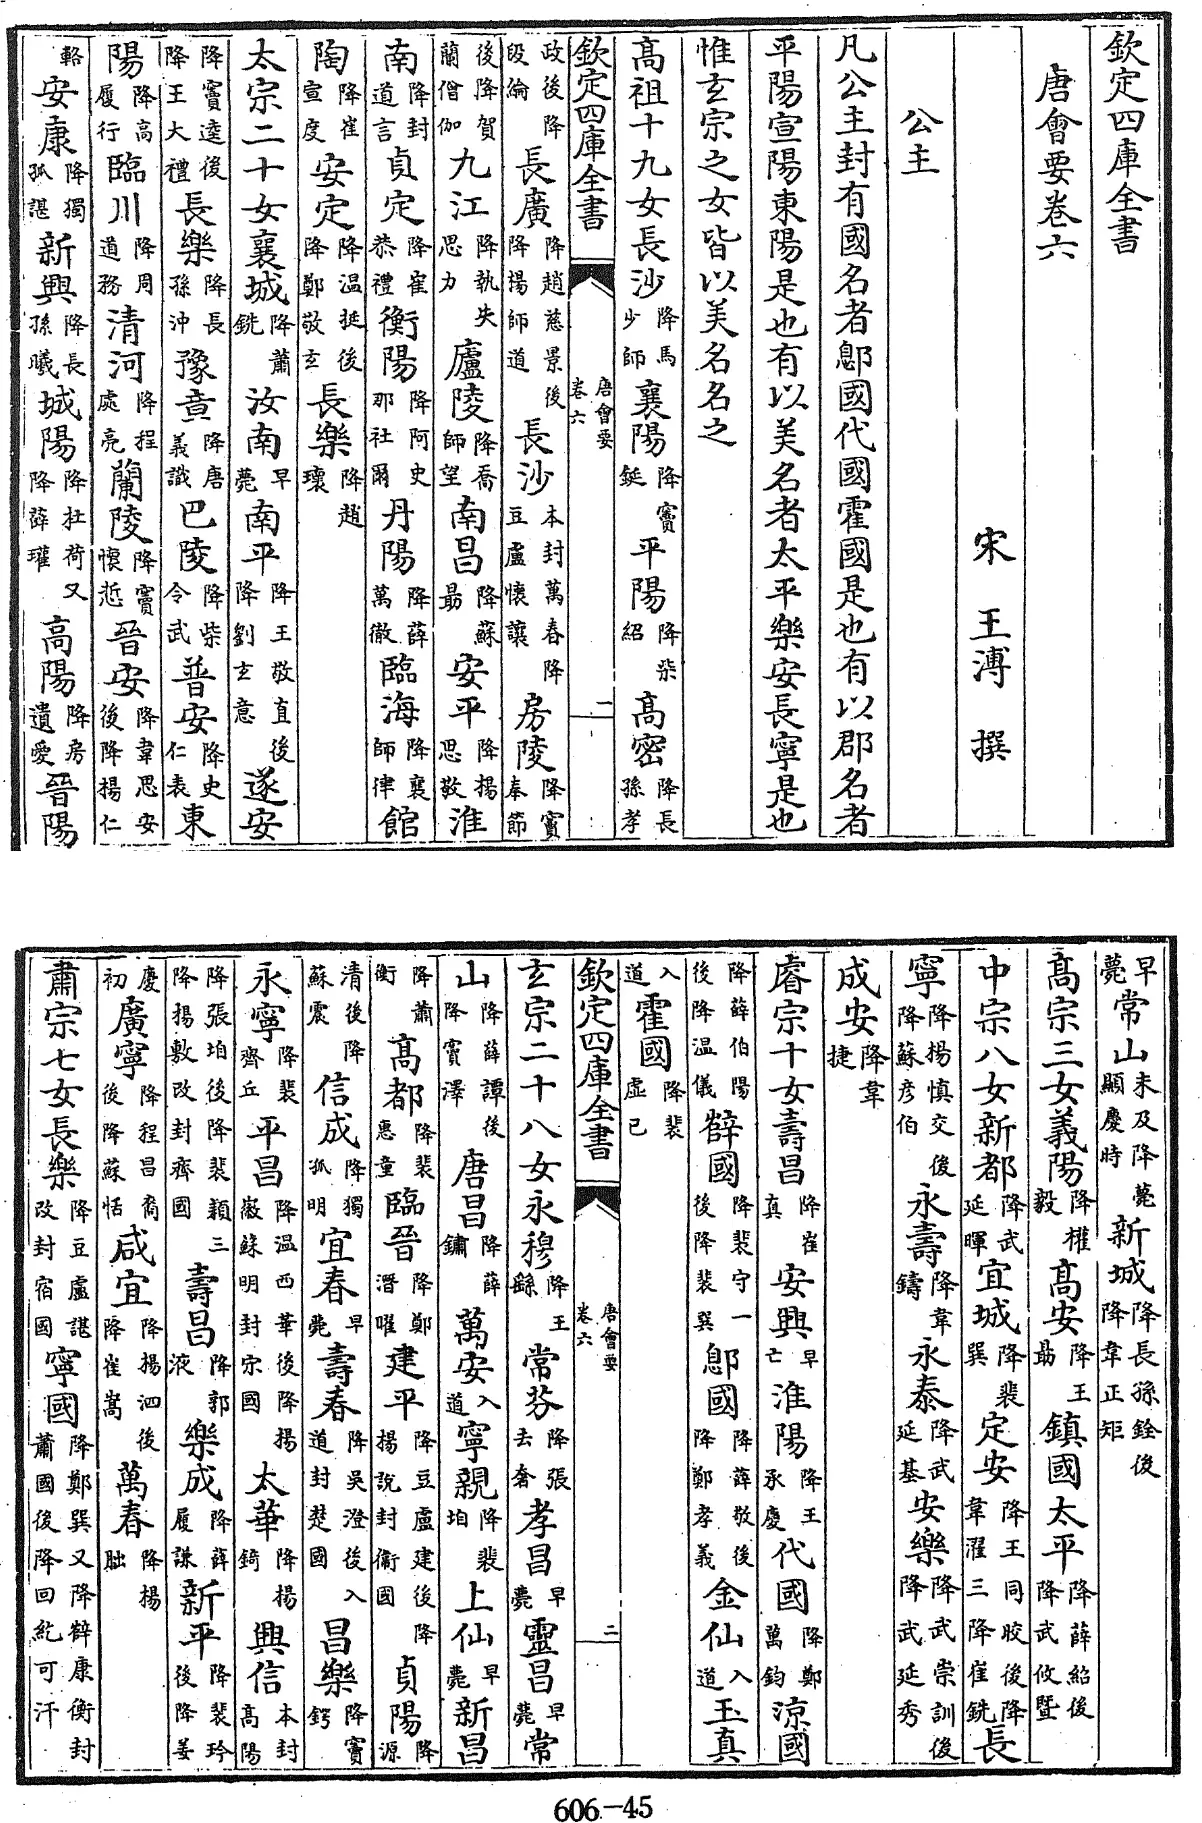 欽定四庫全書
唐會要卷六
宋 王溥 撰
公主
凡公主封有國名者鄎國代國霍國是也有以郡名者
平陽宣陽東陽是也有以美名者太平樂安長寧是也
惟玄宗之女皆以美名名之
高祖十九女長沙降馬少師襄陽降竇鋋平陽降柴紹高密降長孫孝
欽定四庫全書 唐會要卷六 一
政後降段綸長廣降趙慈景後降楊師道長沙本封萬春降豆盧懷讓房陵降竇奉節
後降賀蘭僧伽九江降執失思力廬陵降喬師望南昌降蘇最安平降楊思敬淮
南降封道言貞定降崔恭禮衡陽降阿史那社爾丹陽降薛萬徹臨海降襄師律館
陶降崔宣度安定降温挺後降鄭敬玄長樂降趙瓌
太宗二十女襄城降蕭銑汝南早薨南平降王敬直後降劉玄意遂安
降竇逵後降王大禮長樂降長孫沖豫章降唐義識巴陵降柴令武普安降史仁表東
陽降高履行臨川降周道務清河降程處亮蘭陵降竇懷悊晉安降韋思安後降楊仁
輅安康降獨孤諶新興降長孫曦城陽降杜荷又降薛瓘高陽降房遺愛晉陽
早薨常山未及降薨顯慶時新城降長孫銓後降韋正矩
高宗三女義陽降權毅高安降王勗鎮國太平降薛紹後降武攸暨
中宗八女新都降武延暉宜城降裴巽定安降王同皎後降韋濯三降崔銑長
寧降楊慎交後降蘇彥伯永壽降韋鐬永泰降武延基安樂降武崇訓後降武延秀
成安降韋捷
睿宗十女壽昌降崔真安興早亡淮陽降王承慶代國降鄭萬鈞涼國
降薛伯陽後降温儀薛國降裴守一後降裴巽鄎國降薛敬後降鄭孝義金仙入道玉真
入道霍國降裴虛已
欽定四庫全書 唐會要卷六 二
玄宗二十八女永穆降王繇常芬降張去奢孝昌早薨靈昌早薨常
山降薛譚後降竇澤唐昌降薛鏽萬安入道寧親降裴垍上仙早薨新昌
降蕭衡高都降裴惠童臨晉降鄭潛曜建平降豆盧建後降楊說封衛國貞陽降源
清後降蘇震信成降獨孤明宜春早薨壽春降吳澄後入道封楚國昌樂降竇鍔
永寧降裴齊丘平昌降温西華後降楊徽蘇明封宋國太華降楊錡興信本封高陽
降張垍後降裴潁三降楊敷改封齊國壽昌降郭液樂成降薛履謙新平降裴玲後降姜
慶初廣寧降程昌裔後降蘇恬咸宜降楊洄後降崔嵩萬春降楊朏
肅宗七女長樂降豆盧諶改封宿國寧國降鄭巽又降薛康衡封蕭國後降回紇可汗
606-45